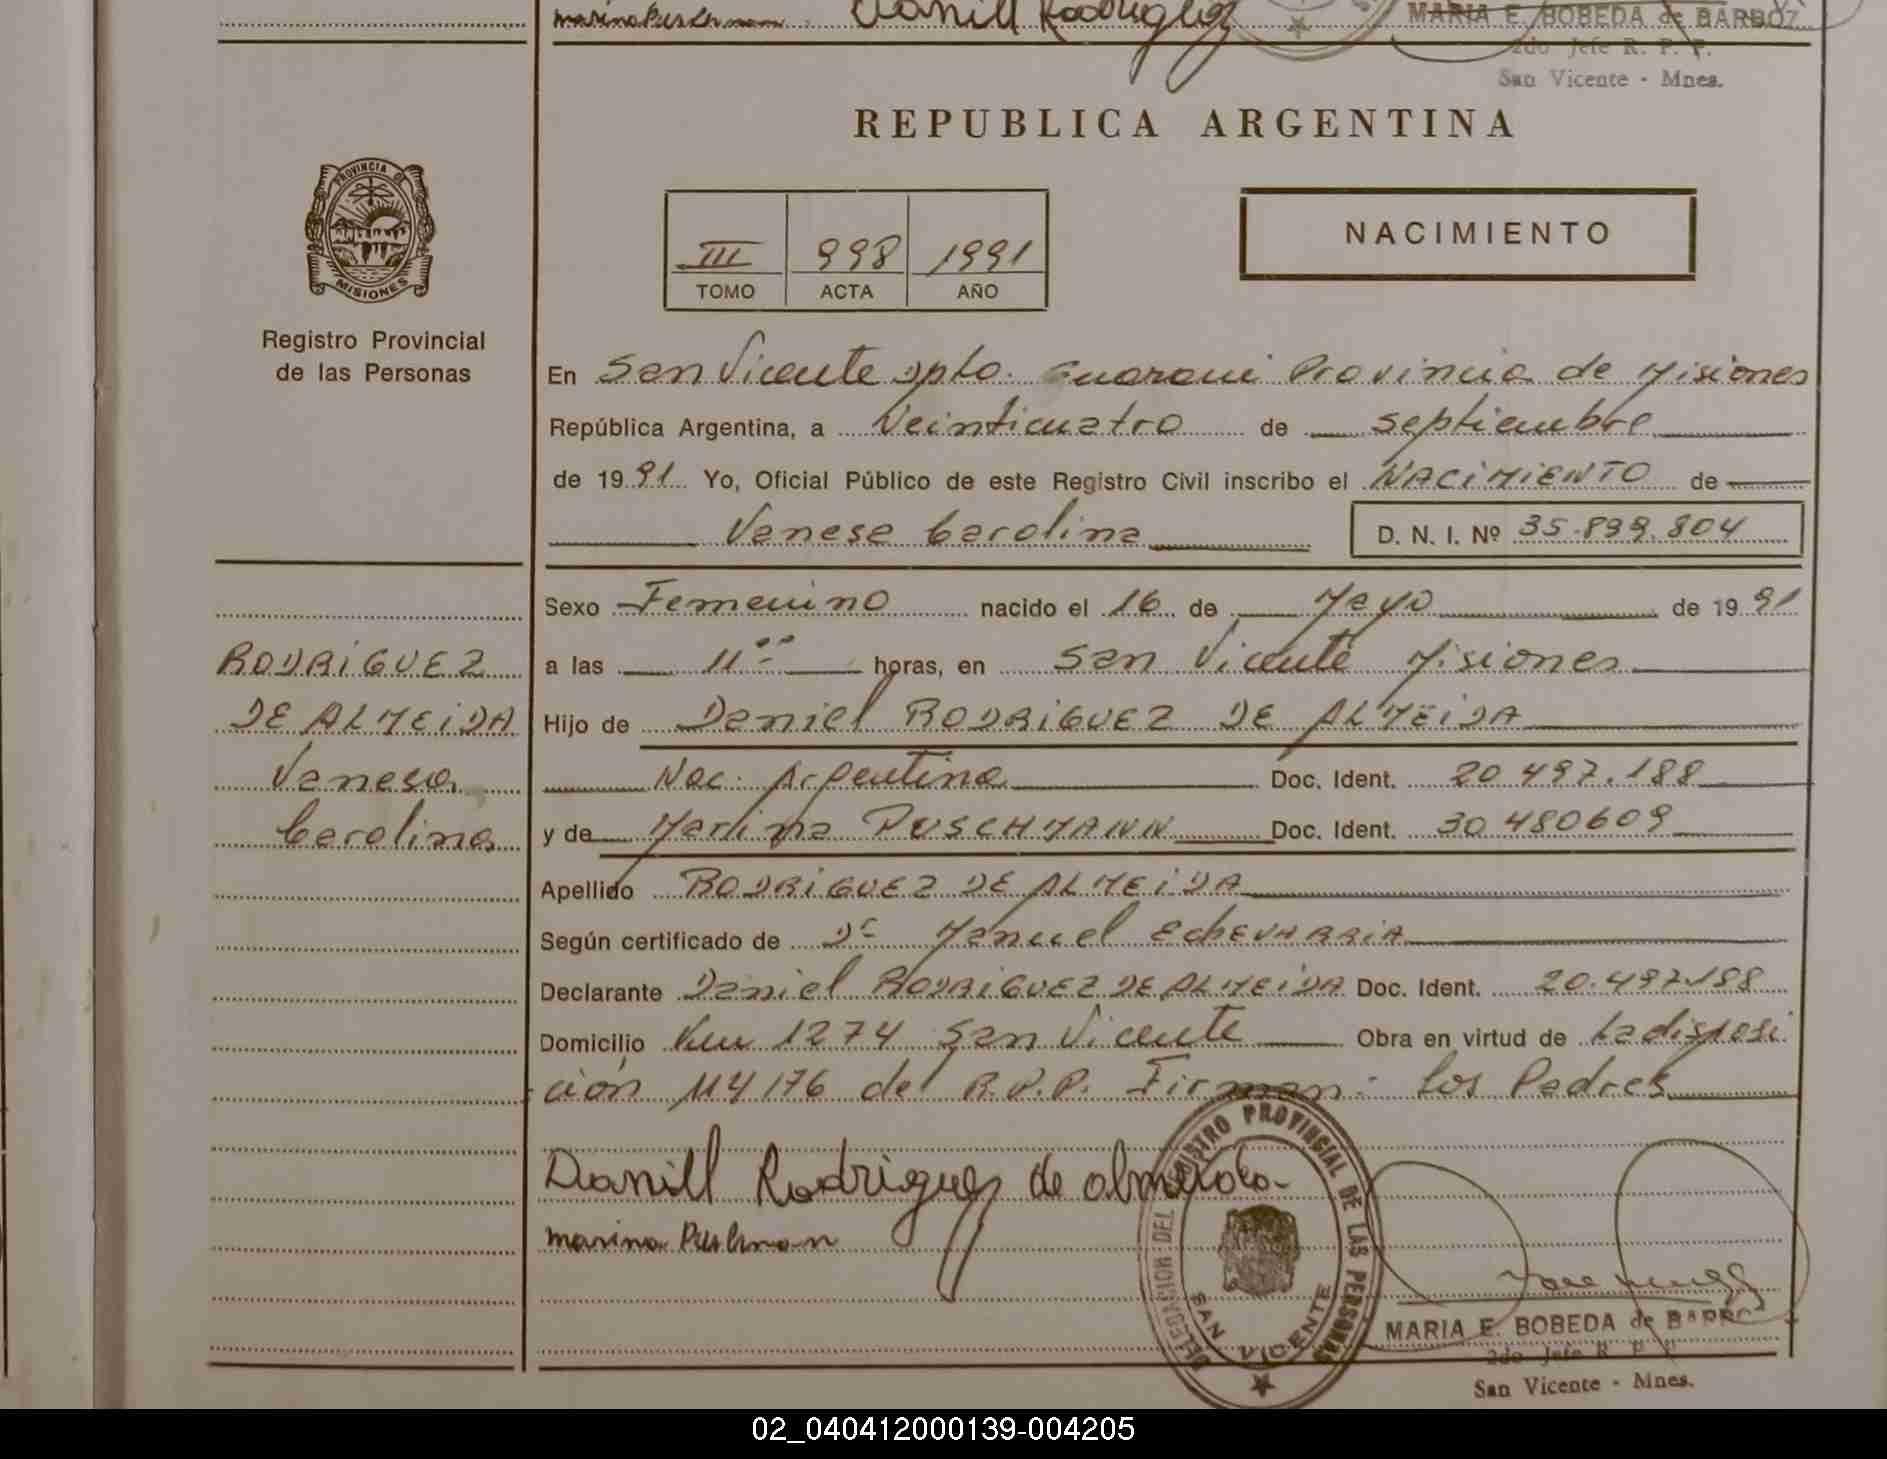 Marina Puschman. Daniel Rodriguez
MARIA E. BOBEDA de BARBOZ
2do Jefe R. P. P.
San Vicente - Mnes.
REPUBLICA ARGENTINA
PROVINCIA DE MISIONES
III 998 1991
TOMO ACTA AÑO
NACIMIENTO
Registro Provincial
de las Personas
En San Vicente Dpto. Guarani Provincia de Misiones
República Argentina, a Veinticuatro de septiembre
de 1991 Yo, Oficial Público de este Registro Civil inscribo el NACIMIENTO de
Vanesa Carolina D. N. I. Nº 35.899.804
Sexo Femenino nacido el 16 de Mayo de 1991
RODRIGUEZ
DE ALMEIDA
Vanesa
Carolina
a las 11ºº horas, en San Vicente Misiones
Hijo de Daniel RODRIGUEZ DE ALMEIDA
Nac. Argentina Doc. Ident. 20.497.188
y de Marina PUSCHMANN Doc. Ident. 30.480609
Apellido RODRIGUEZ DE ALMEIDA
Según certificado de Dr Manuel EcheVARRIA
Declarante Daniel RODRIGUEZ DE ALMEIDA Doc. Ident. 20.497.188
Domicilio Km 1274 San Vicente Obra en virtud de La disposi
ción 114/76 del R.P.P. Firman: los Padres
Daniell Rodriguez de almeida-
marina Pushman
DELEGACION DEL REGISTRO PROVINCIAL DE LAS PERSONAS
SAN VICENTE
MARIA E. BOBEDA de BARBO
2do Jefe R. P. P.
San Vicente - Mnes.
02_040412000139-004205